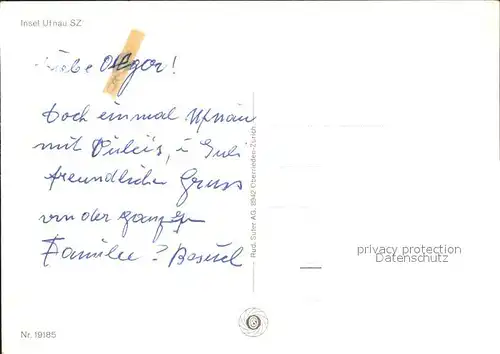 Insel Ufnau SZ
Liebe
Doch einmal Ufnau
mit
freundlichen Gruss
von der ganzen
Familie ?
Rud. Suter AG, 8942 Oberrieden-Zürich
privacy protection
Datenschutz
Nr. 19185